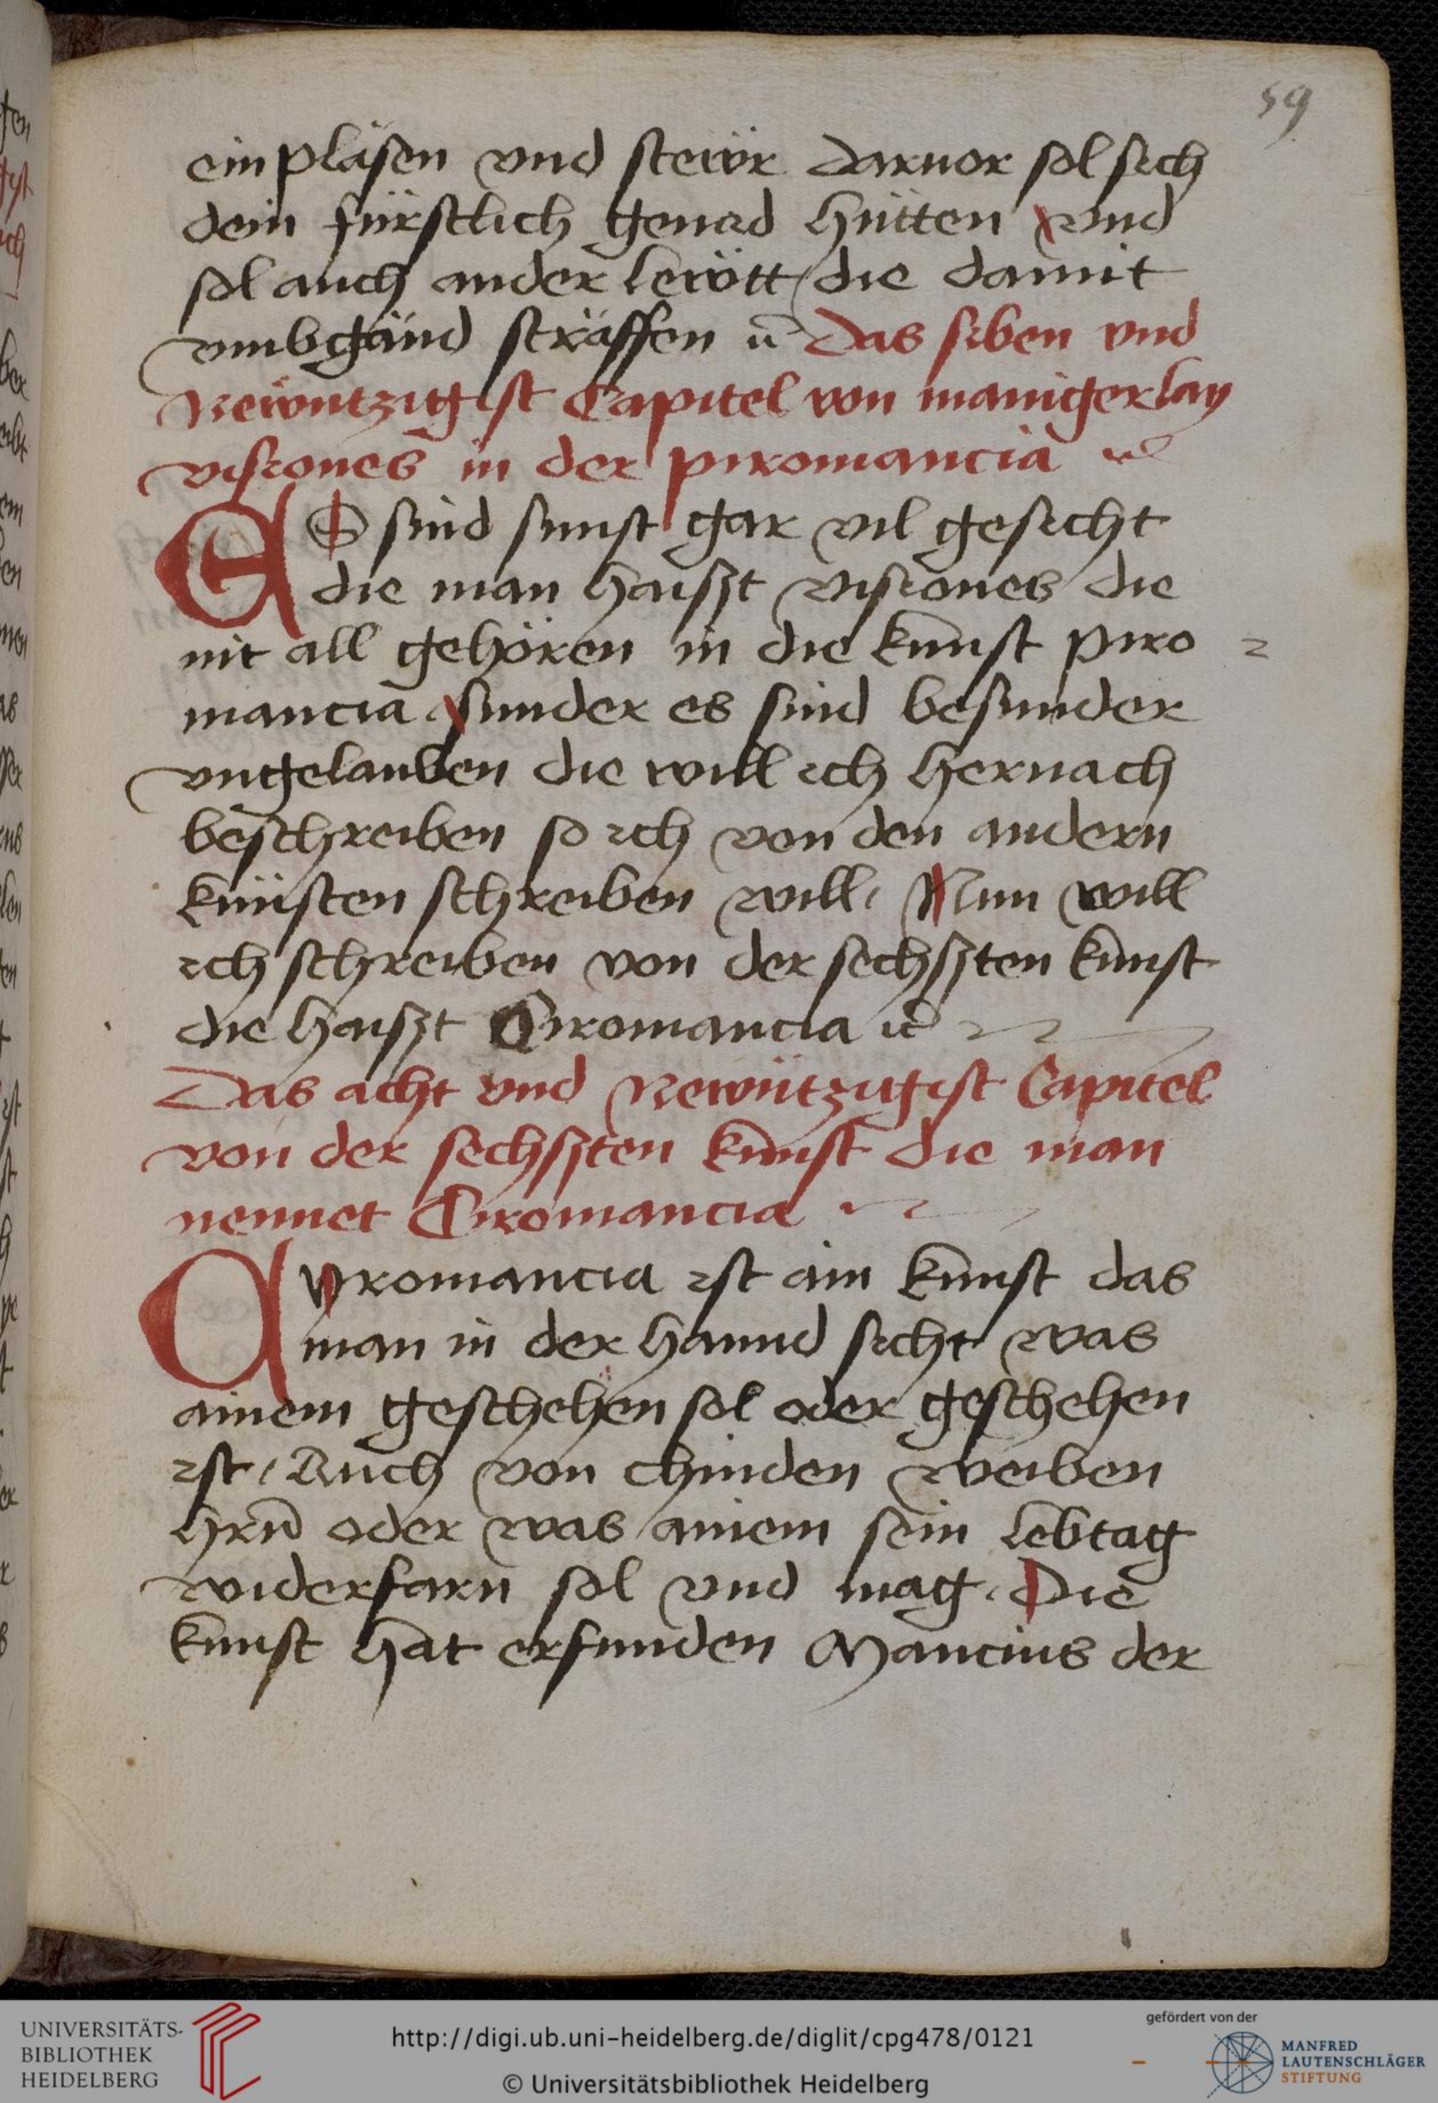 59
ein pläsen vnd stewr darvor sol sich
dein fürstlich genad hütten vnd
sol auch ander lewtt die damit
vmbgänd sträffen ꝛc Das siben vnd
Newntzigist Capitel von manigerlay
visiones in der piromancia ꝛc
ES sind sunst gar vil gesicht
die man haisst visiones die
nit all gehören in die kunst piro
mancia sunder es sind besunder
vngelauben die will ich hernach
beschreiben so ich von den andern
künsten schreiben will Nun will
ich schreiben von der sechsten kunst
die haisst Ciromancia ꝛc
Das acht vnd Newntzigist Capitel
von der sechsten kunst die man
nennet Ciromancia
Cyromancia ist ain kunst das
man in der hannd sicht was
ainem geschehen sol oder geschehen
ist / Auch von chinden weiben
hrn̄ oder was ainem sein lebtag
widerfarn sol vnd mag. Die
kunst hat erfunden Mancius der
UNIVERSITÄTS-
BIBLIOTHEK
HEIDELBERG
http://digi.ub.uni-heidelberg.de/diglit/cpg478/0121
© Universitätsbibliothek Heidelberg
gefördert von der
MANFRED
LAUTENSCHLÄGER
STIFTUNG